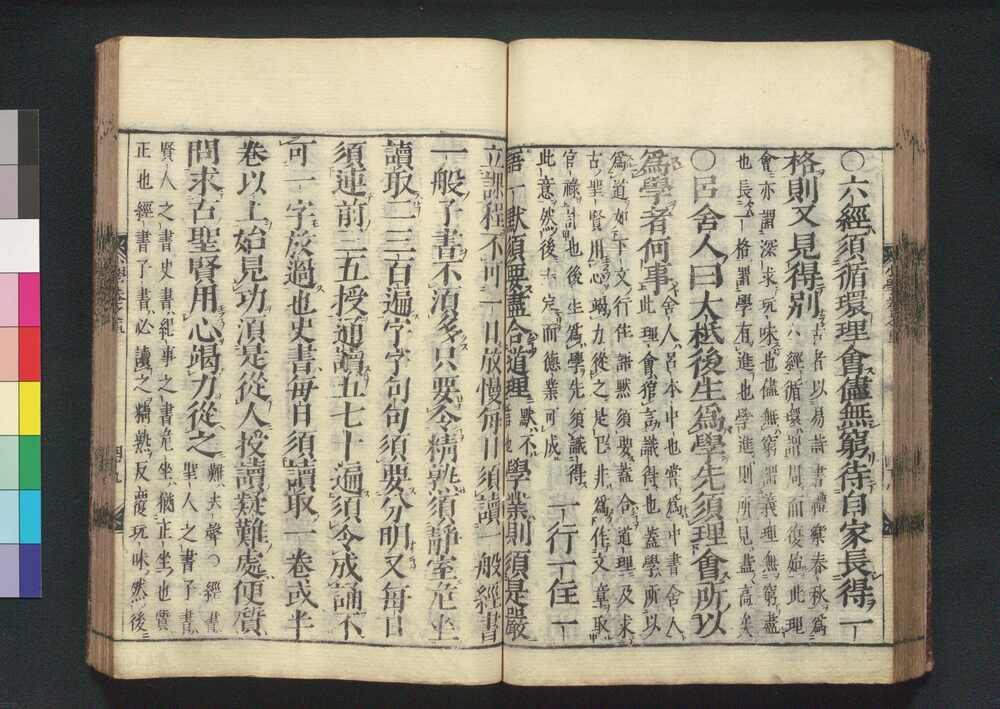 〇六經須循環理會儘無窮待自家長得一
格則又見得別
古者以易詩書禮樂春秋爲
六經循環謂周而復始此理
會亦謂深求玩味也儘無窮謂義理無窮盡
也長一格謂學有進也學進則所見益高矣
〇呂舍人曰大柢後生爲學先須理會所以
爲學者何事
舍人呂本中也嘗爲中書舍人
此理會猶言識得也蓋學所以
爲道如下文行住語默須要盡合道理及求
古聖賢用心竭力從之是已非爲作文章取
官祿計也後生爲學先須識得
此意然後志定而德業可成
一行一住一
語一默須要盡合道理
默不言也
學業則須是嚴
立課程不可一日放慢每日須讀一般經書
一般子書不湏多只要令精熟湏靜室危坐
讀取二三百遍字字句句須要分明又每日
須連前三五授通讀五七十遍須令成誦不
可一字放過也史書每日須讀取一卷或半
卷以上始見功湏是從人授讀疑難處便質
問求古聖賢用心竭力從之
難去聲〇經書
聖人之書子書
賢人之書史書紀事之書危坐猶正坐也質
正也經書子書必讀之精熟反覆玩味然後